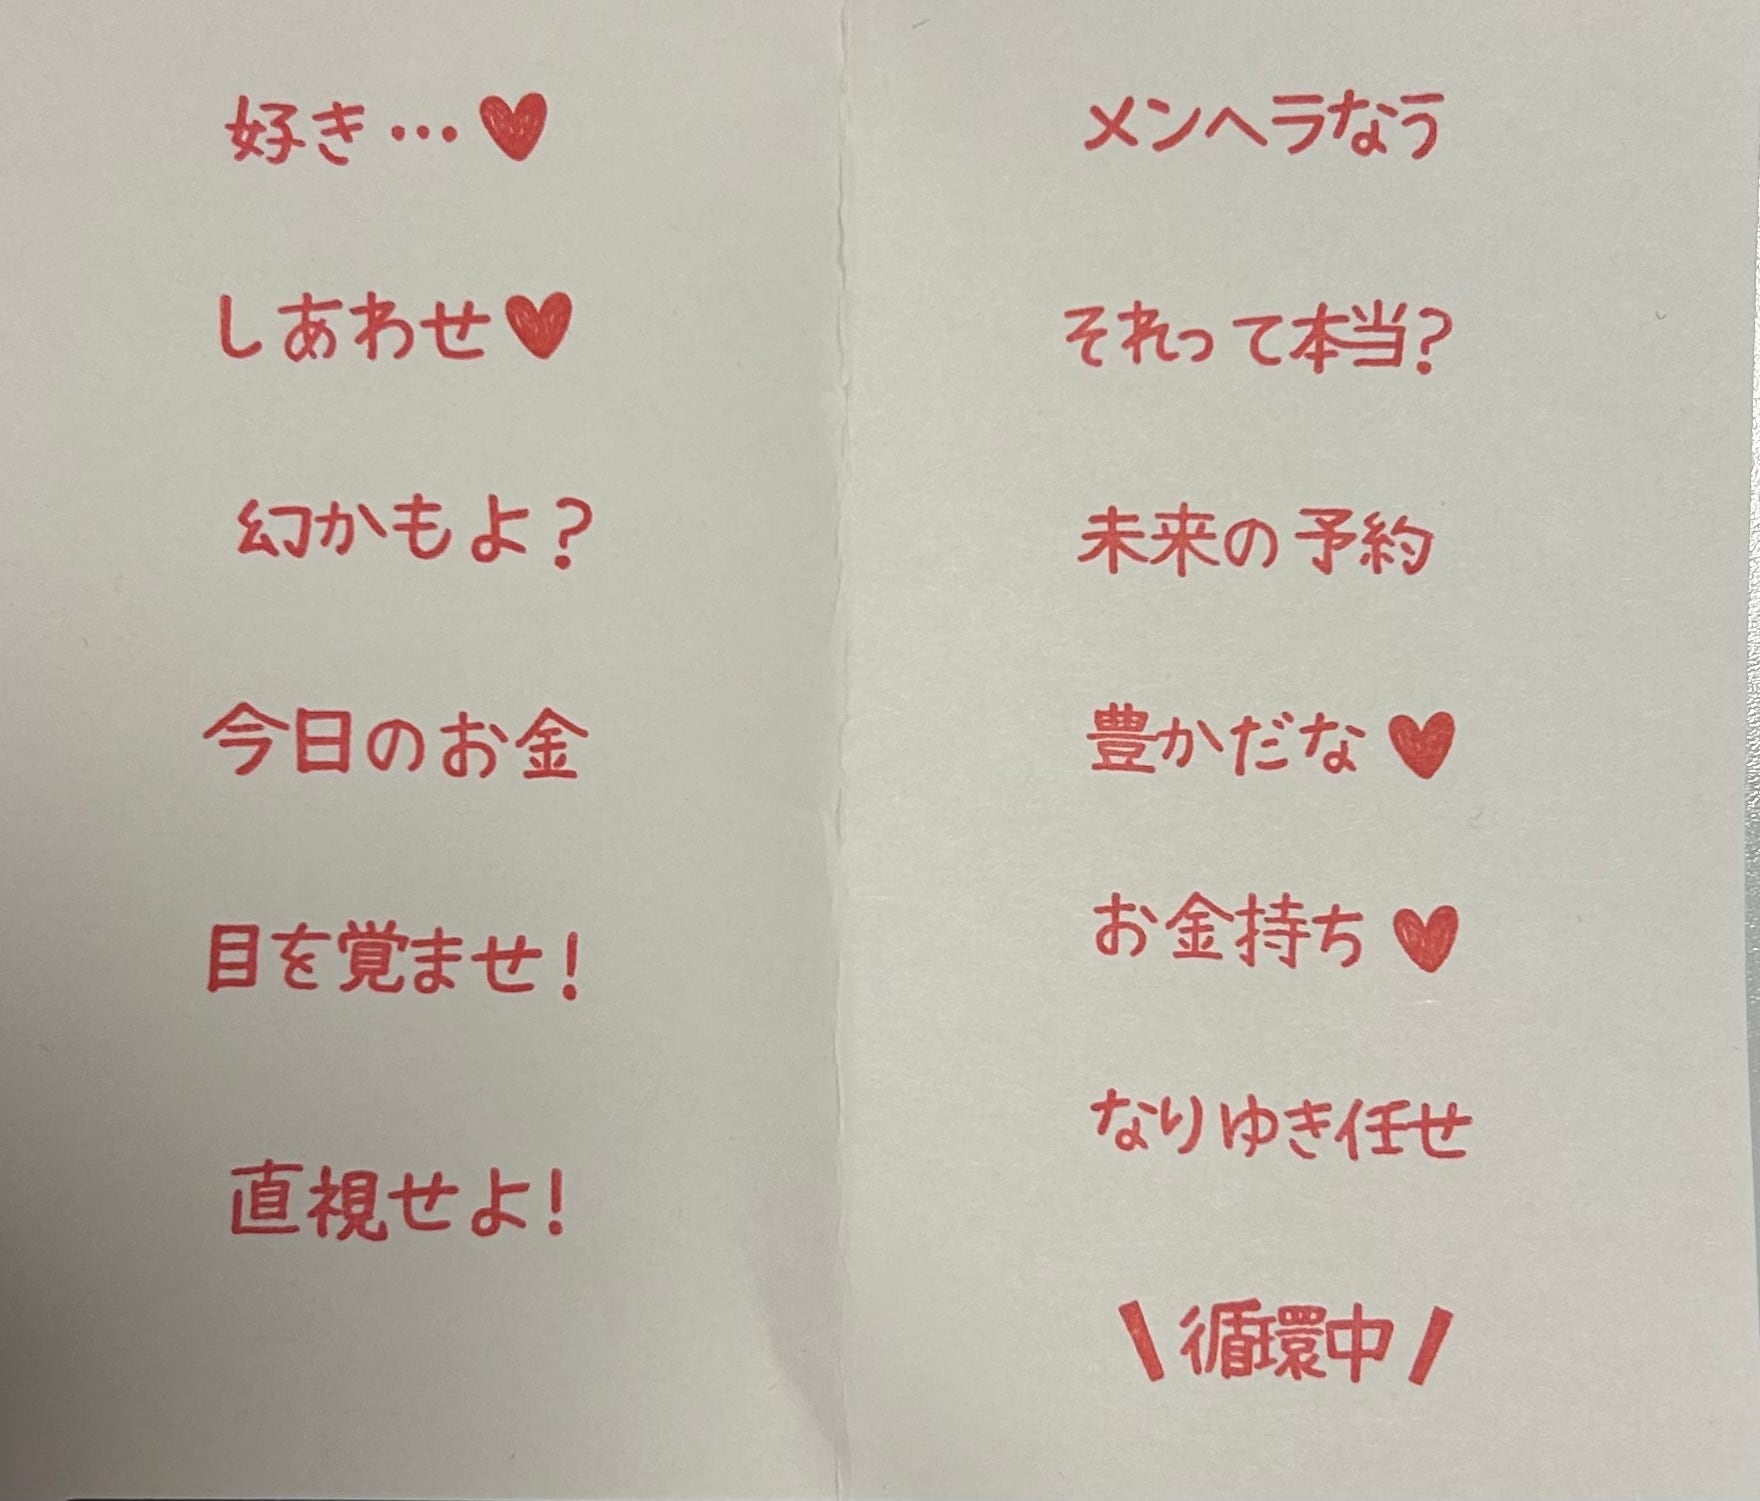 好き…♥
しあわせ♥
幻かもよ？
今日のお金
目を覚ませ！
直視せよ！
メンヘラなう
それって本当？
未来の予約
豊かだな♥
お金持ち♥
なりゆき任せ
\循環中/